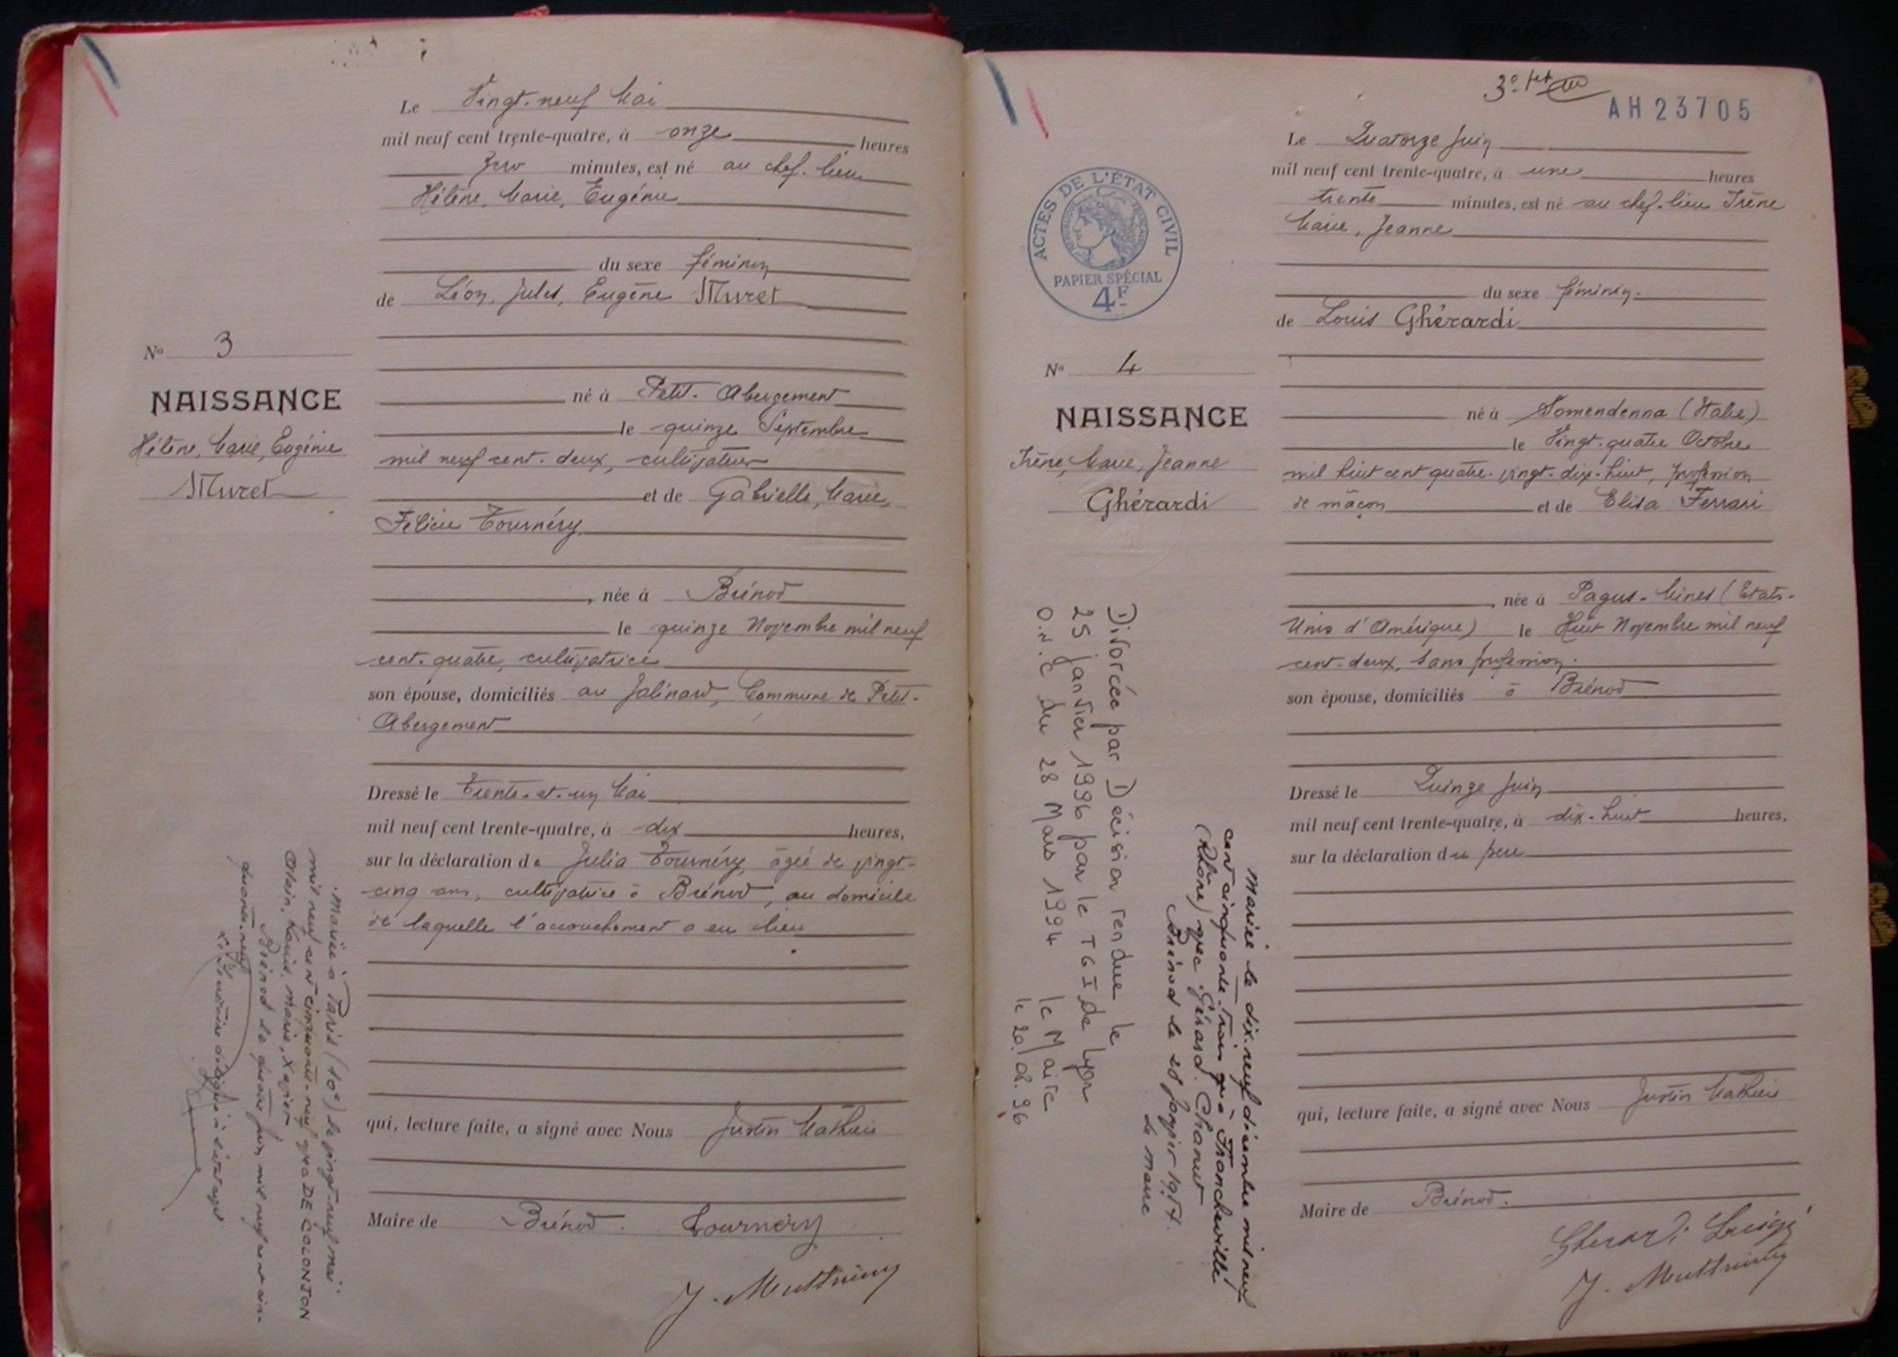 Le Vingt-neuf Mai
mil neuf cent trente-quatre, à onze heures
zéro minutes, est né au chef-lieu
Hélène, Marie, Eugénie
du sexe féminin
de Léon, Jules, Eugène Muret
No 3
NAISSANCE
Hélène, Marie, Eugénie
Muret
né à Petit-Abergement
le quinze Septembre
mil neuf cent-deux, cultivateur
et de Gabrielle, Marie,
Félicie Tournéry
, née à Brénod
le quinze Novembre mil neuf
cent-quatre, cultivatrice
son épouse, domiciliés au Jalinard, Commune de Petit-
Abergement
Dressé le Trente-et-un Mai
mil neuf cent trente-quatre, à dix heures,
sur la déclaration de Julia Tournéry, âgée de vingt-
cinq ans, cultivatrice à Brénod, au domicile
de laquelle l'accouchement a eu lieu
qui, lecture faite, a signé avec Nous Justin Mathieu
Maire de Brénod. Tournéry
Mariée à Paris (10e) le vingt-neuf mai
mil neuf cent cinquante-neuf avec DE COLONJON
Alain, Louis, Marie, Xavier
Brénod le quatre juin mil neuf cent cin-
quante-neuf
3e
AH23705
Le Quatorze Juin
mil neuf cent trente-quatre, à une heures
trente minutes, est né au chef-lieu Irène
Marie, Jeanne
du sexe féminin.
de Louis Ghérardi
ACTES DE L'ÉTAT CIVIL
PAPIER SPÉCIAL
4F
No 4
NAISSANCE
Irène, Marie, Jeanne
Ghérardi
né à Nomendenna (Italie)
le Vingt-quatre Octobre
mil huit cent quatre-vingt-dix-huit, profession
de mâçon et de Elisa Ferrari
, née à Pagus-Mines (Etats-
Unis d'Amérique) le Huit Novembre mil neuf
cent-deux, sans profession.
son épouse, domiciliés à Brénod
Dressé le Quinze Juin
mil neuf cent trente-quatre, à dix-huit heures,
sur la déclaration du père
qui, lecture faite, a signé avec Nous Justin Mathieu
Maire de Brénod.
Mariée le dix-neuf décembre mil neuf
cent cinquante-trois à Francheville
(Rhône) avec Gérard Chanut
Brénod le 28 Janvier 1954.
Le maire
Divorcée par Décision rendue le
25 janvier 1996 par le TGI de Lyon
O.N.C du 28 Mars 1994 le Maire
le 20.02.96